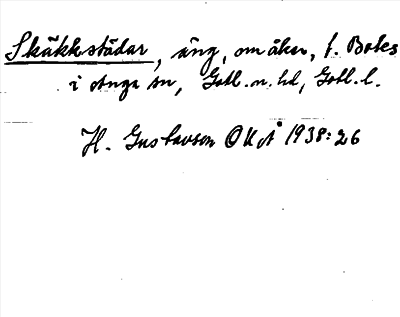 Skäkkstädar, äng, om åker, t. Botes
i Anga sn, Gotl. n. hd, Gotl. l.
H. Gustavson OUÅ 1938:26